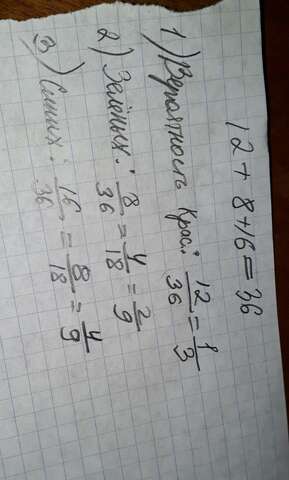 12 + 8 + 16 = 36
1) Вероятность Крас: 12/36 = 1/3
2) Зелёных: 8/36 = 4/18 = 2/9
3) Синих: 16/36 = 8/18 = 4/9